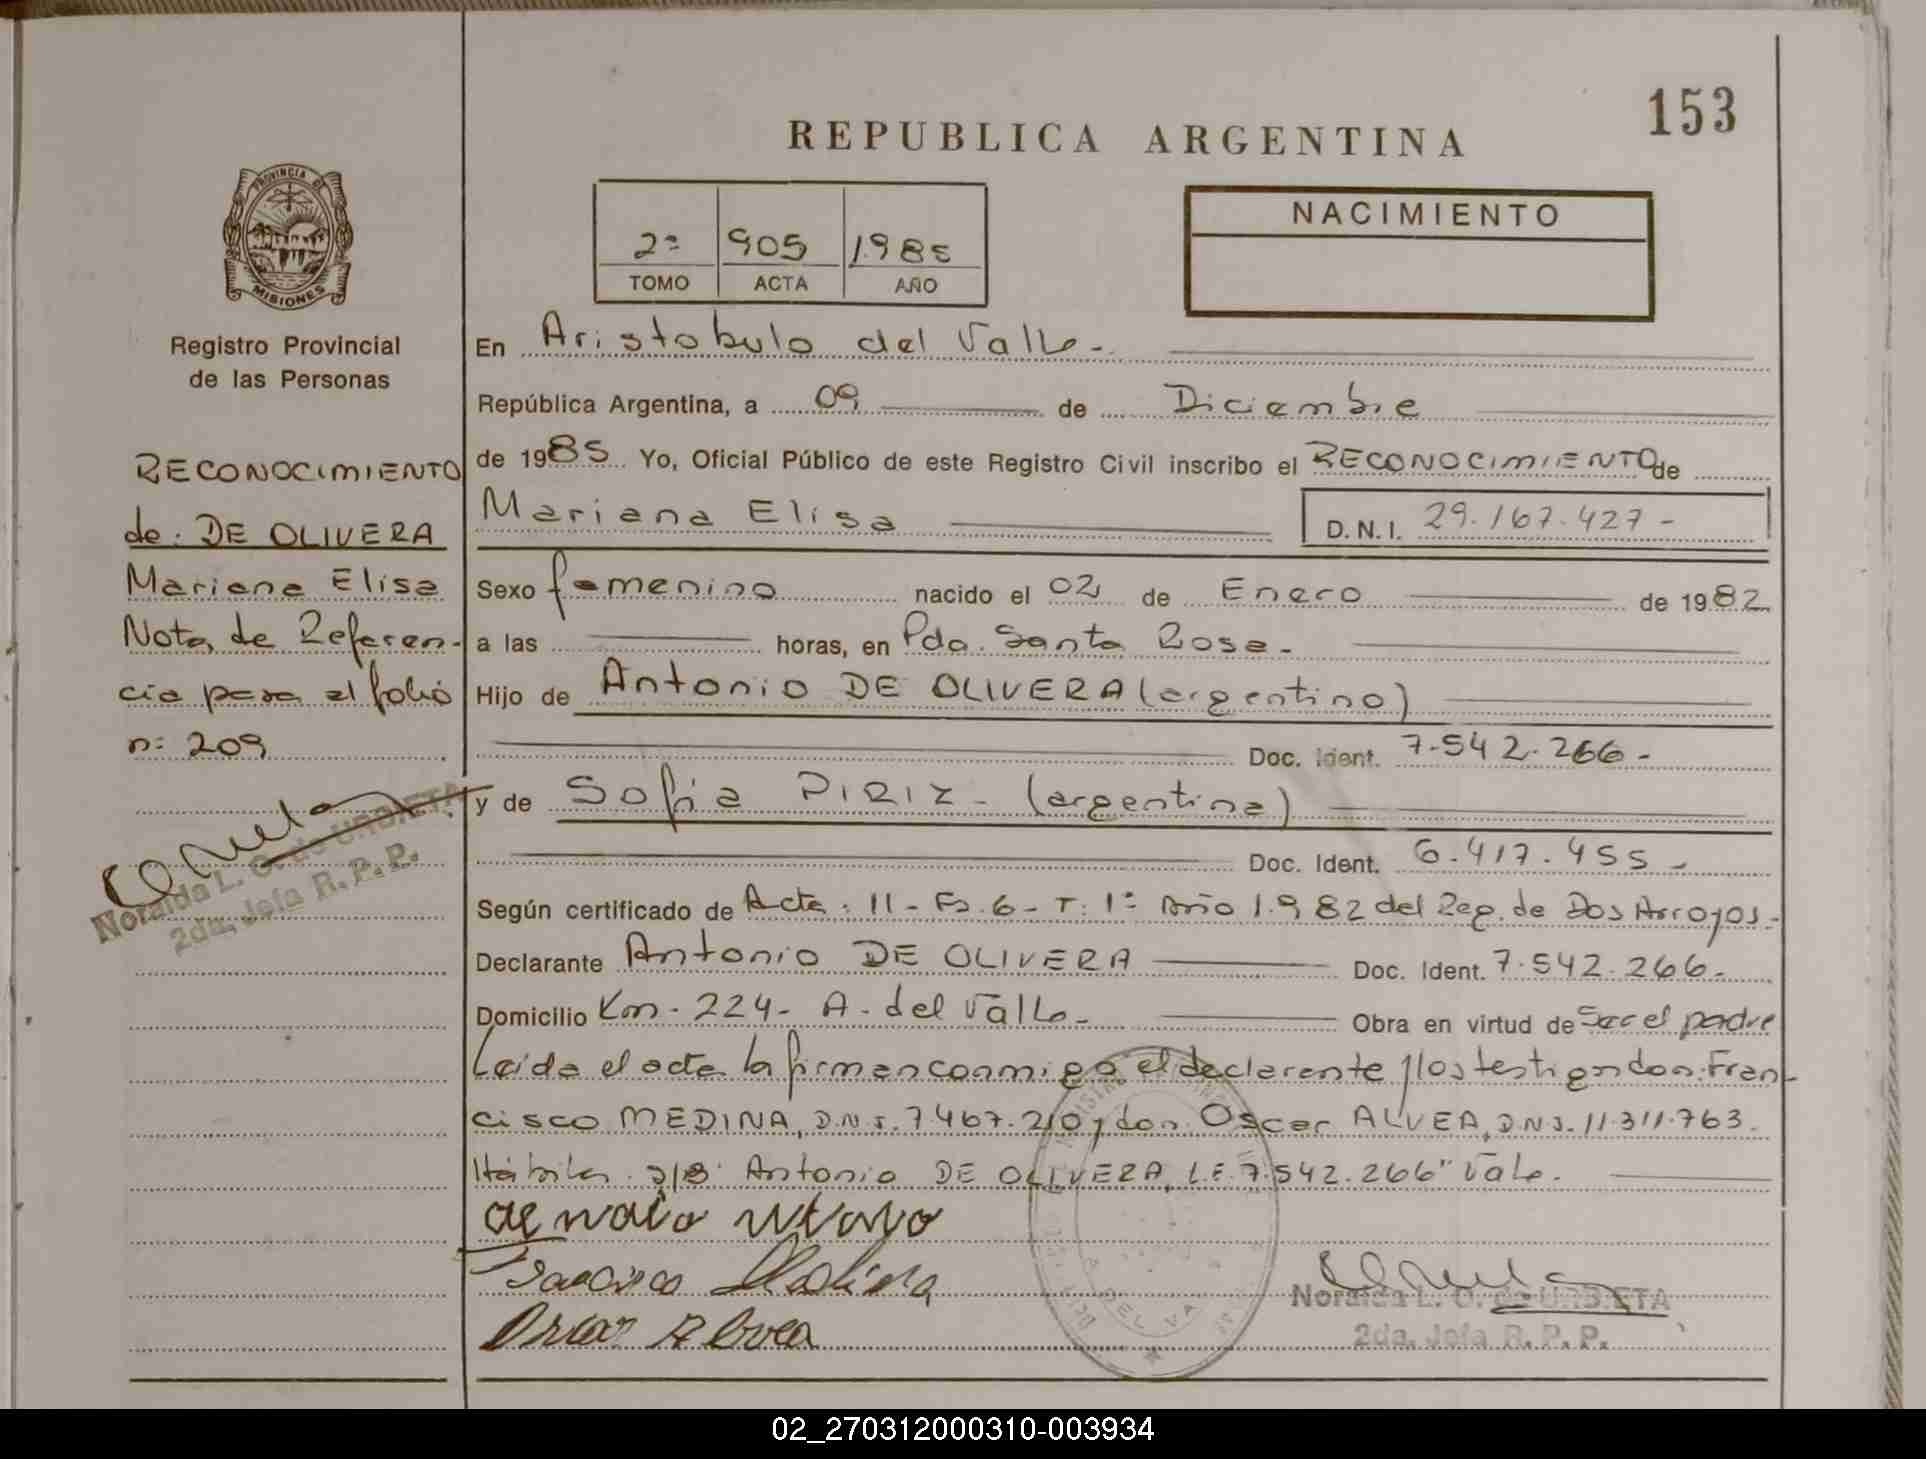 153
REPUBLICA ARGENTINA
PROVINCIA DE
MISIONES
Registro Provincial
de las Personas
2º 905 1.985
TOMO ACTA AÑO
NACIMIENTO
RECONOCIMIENTO
de: DE OLIVERA
Mariana Elisa
Nota de Referen-
cia pasa al folio
nº 209
Noralda L. O. de URBIETA
2da. Jefa R. P. P.
En Aristobulo del Valle.-
República Argentina, a 09 de Diciembre
de 1985 Yo, Oficial Público de este Registro Civil inscribo el RECONOCIMIENTO de
Mariana Elisa D. N. I. 29.167.427-
Sexo femenino nacido el 02 de Enero de 1982
a las horas, en Pda. Santa Rosa.-
Hijo de Antonio DE OLIVERA (argentino)
Doc. Ident. 7.542.266.-
y de Sofia PIRIZ- (argentina)
Doc. Ident. 6.417.455.-
Según certificado de Acta: 11- Fº.6- T: 1º Año 1.982 del Reg. de Dos Arroyos.-
Declarante Antonio DE OLIVERA Doc. Ident. 7.542.266.-
Domicilio Km. 224- A. del Valle.- Obra en virtud de Ser el padre
Leida el acta la firman conmigo el declarante y los testigos don: Fran-
cisco MEDINA, D.N.I. 7.467.210 y don Oscar ALVEA, D.N.I. 11.311.763.
Hábiles. Antonio DE OLIVERA, L.E. 7.542.266" Vale.
Francisco Medina
Oscar Alvea
A. DEL VA
Noralda L. O. de URBIETA
2da. Jefa R. P. P.
02_270312000310-003934